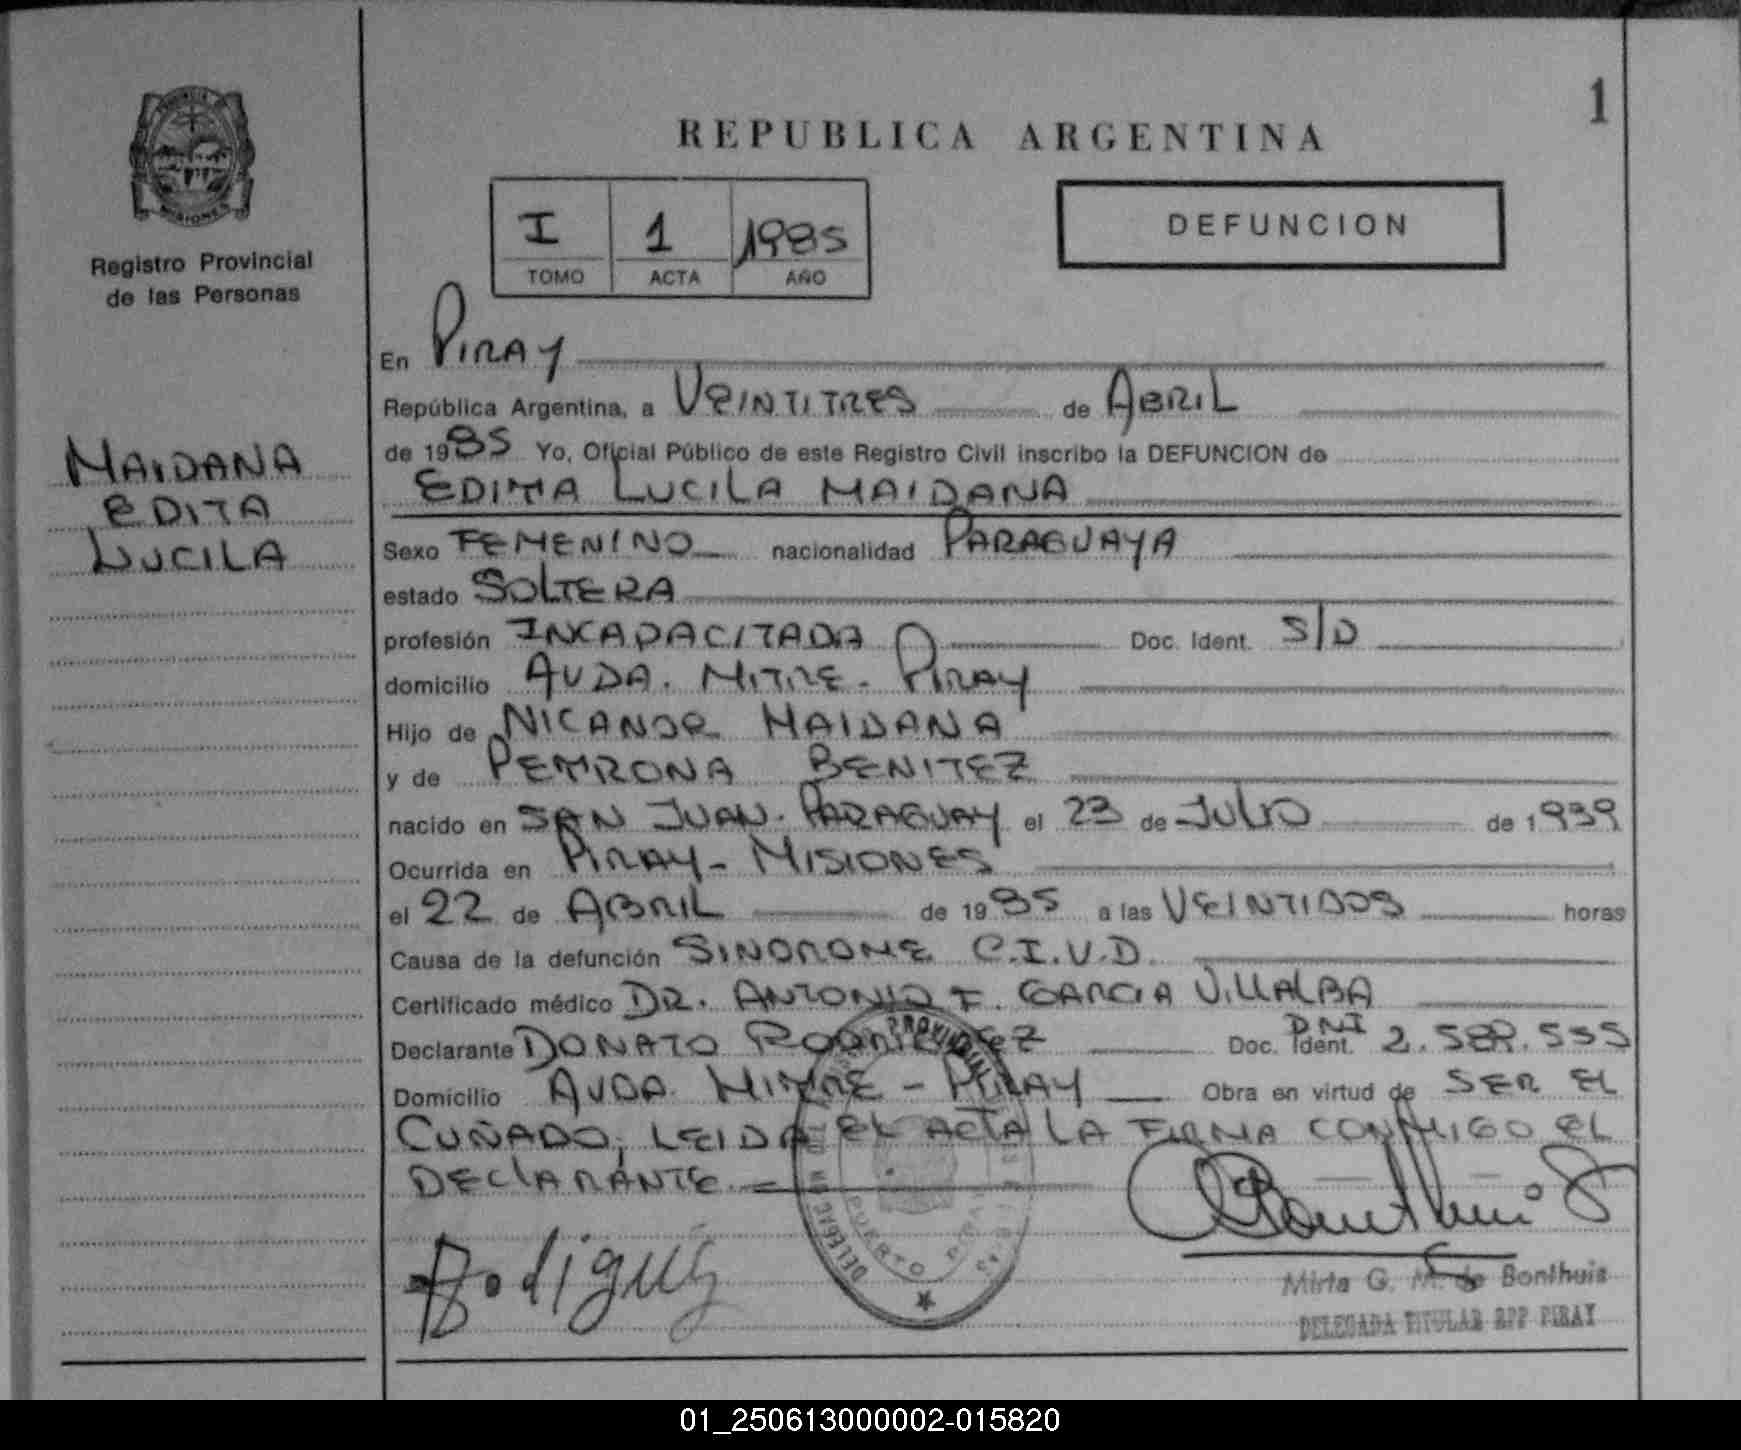 1
REPUBLICA ARGENTINA
I 1 1985
TOMO ACTA AÑO
DEFUNCION
MISIONES
Registro Provincial
de las Personas
MAIDANA
EDITA
LUCILA
En PIRAY
República Argentina, a VEINTITRES de ABRIL
de 1985 Yo, Oficial Público de este Registro Civil inscribo la DEFUNCION de
EDITA LUCILA MAIDANA
Sexo FEMENINO nacionalidad PARAGUAYA
estado SOLTERA
profesión INCAPACITADA Doc. Ident. S/D
domicilio AVDA. MITRE. PIRAY
Hijo de NICANOR MAIDANA
y de PETRONA BENITEZ
nacido en SAN JUAN. PARAGUAY el 23 de JULIO de 1939
Ocurrida en PIRAY - MISIONES
el 22 de ABRIL de 1985 a las VEINTIDOS horas
Causa de la defunción SINDROME C.I.V.D.
Certificado médico DR. ANTONIO F. GARCIA VILLALBA
Declarante DONATO RODRIGUEZ Doc. Ident. DNI 2.588.555
Domicilio AVDA. MITRE - PIRAY Obra en virtud de SER EL
CUÑADO, LEIDA EL ACTA LA FIRMA CONMIGO EL
DECLARANTE.-
Rodiguez
Mirta G. M. de Bonthuis
DELEGADA TITULAR RPP PIRAY
01_250613000002-015820